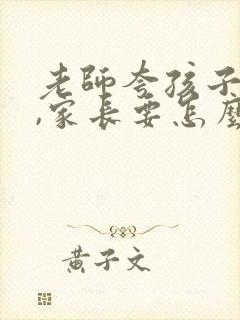 老師夸孩子
,家長要怎麼
黃子文